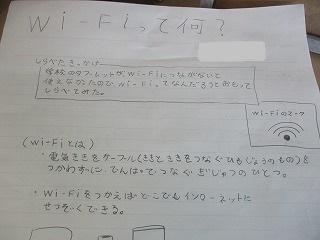 Wi-Fiって何?
しらべたきっかけ
学校のタブレットがWi-Fiにつながないと
使えなかったのでWi-Fiってなんだろうとおもって
しらべてみた。
Wi-Fiのマーク
(Wi-Fiとは)
・電気ききをケーブル(ききとききをつなぐひもじょうのもの)を
つかわずに、でんぱでつなぐぎじゅつのひとつ。
・Wi-Fiをつかえばどこでもインターネットに
せつぞくできる。